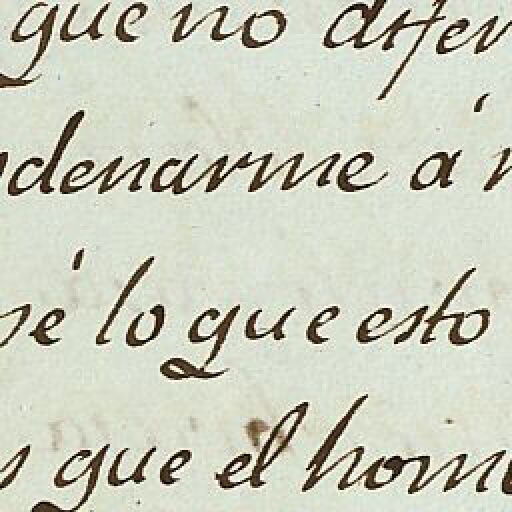 que no difer
denarme á
sé lo que esto
que el hom